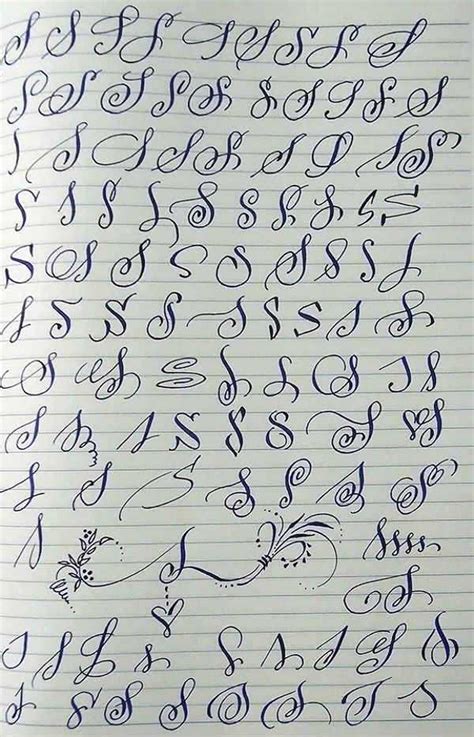 S S S S S S S S S
S S S S S S S S S S
S S S S S S S S S S
S S S S S S S S S S
S S S S S S S S S
S S S S S S S S S
S S S S S S S S S
S S S S S S S S S
S S S S S S S S
S S SSSS
S
S S S S S S S S S
S S S S S S S S S